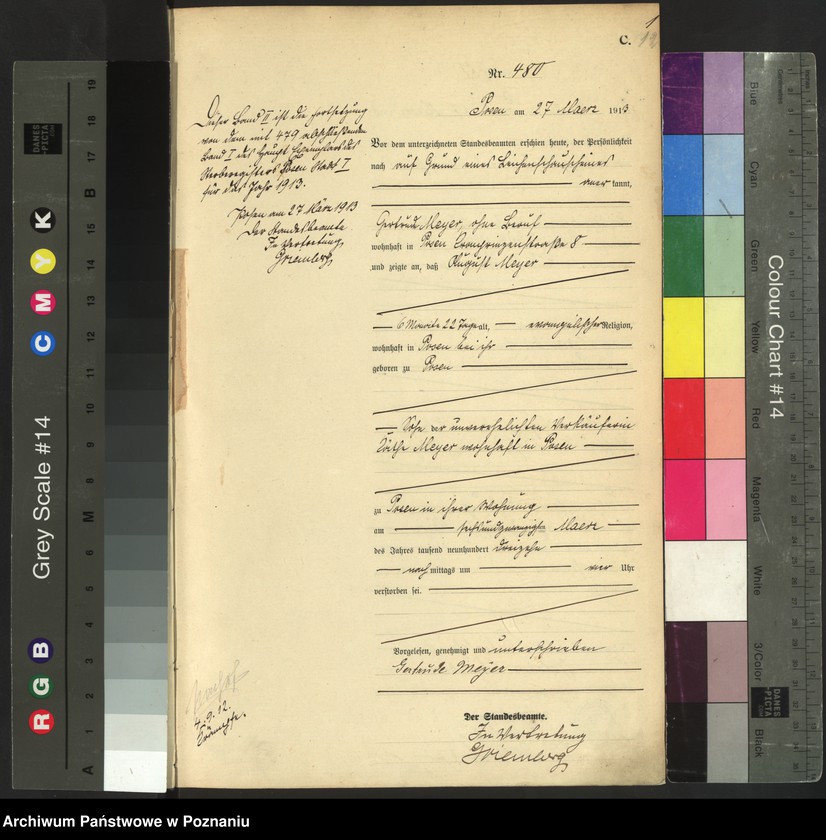 C.
1
12
Nr. 480
Posen am 27 Maerz 1913
Vor dem unterzeichneten Standesbeamten erschien heute, der Persönlichkeit
nach auf Grund eines Leichenschauscheines
anerkannt,
Gertrud Meyer, ohne Beruf
wohnhaft in Posen 8
und zeigte an, daß August Meyer
6 Monate 22 Tage alt, evangelischer Religion,
wohnhaft in Posen bei ihr
geboren zu Posen
Sohn der unverehelichten Verkäuferin
Käthe Meyer wohnhaft in Posen
zu Posen in ihrer Wohnung
am sechsundzwanzigsten Maerz
des Jahres tausend neunhundert dreizehn
nachmittags um vier Uhr
verstorben sei.
Vorgelesen, genehmigt und unterschrieben
Gertrude Meyer
Der Standesbeamte.
In Vertretung
Dieser Band II ist die Fortsetzung
von dem mit 479 abschließenden
Band I des Haupt Exemplars des
Sterberegisters Posen Stadt I
für das Jahr 1913.
Posen am 27 März 1913
Der Standesbeamte
In Vertretung
4. 9. 12.
Grey Scale #14
R G B
C M Y K
A 1 2 3 4 5 6 M 8 9 10 11 12 13 14 15 B 17 18 19
DANES
PICTA
.COM
Colour Chart #14
Blue
Cyan
Green
Yellow
Red
Magenta
White
3/Color
Black
Centimetres
DANES
PICTA
.COM
Archiwum Państwowe w Poznaniu